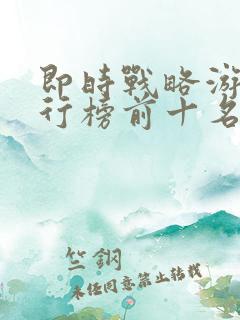 即時戰略游
行榜前十名
竺鋼
未经同意禁止转载